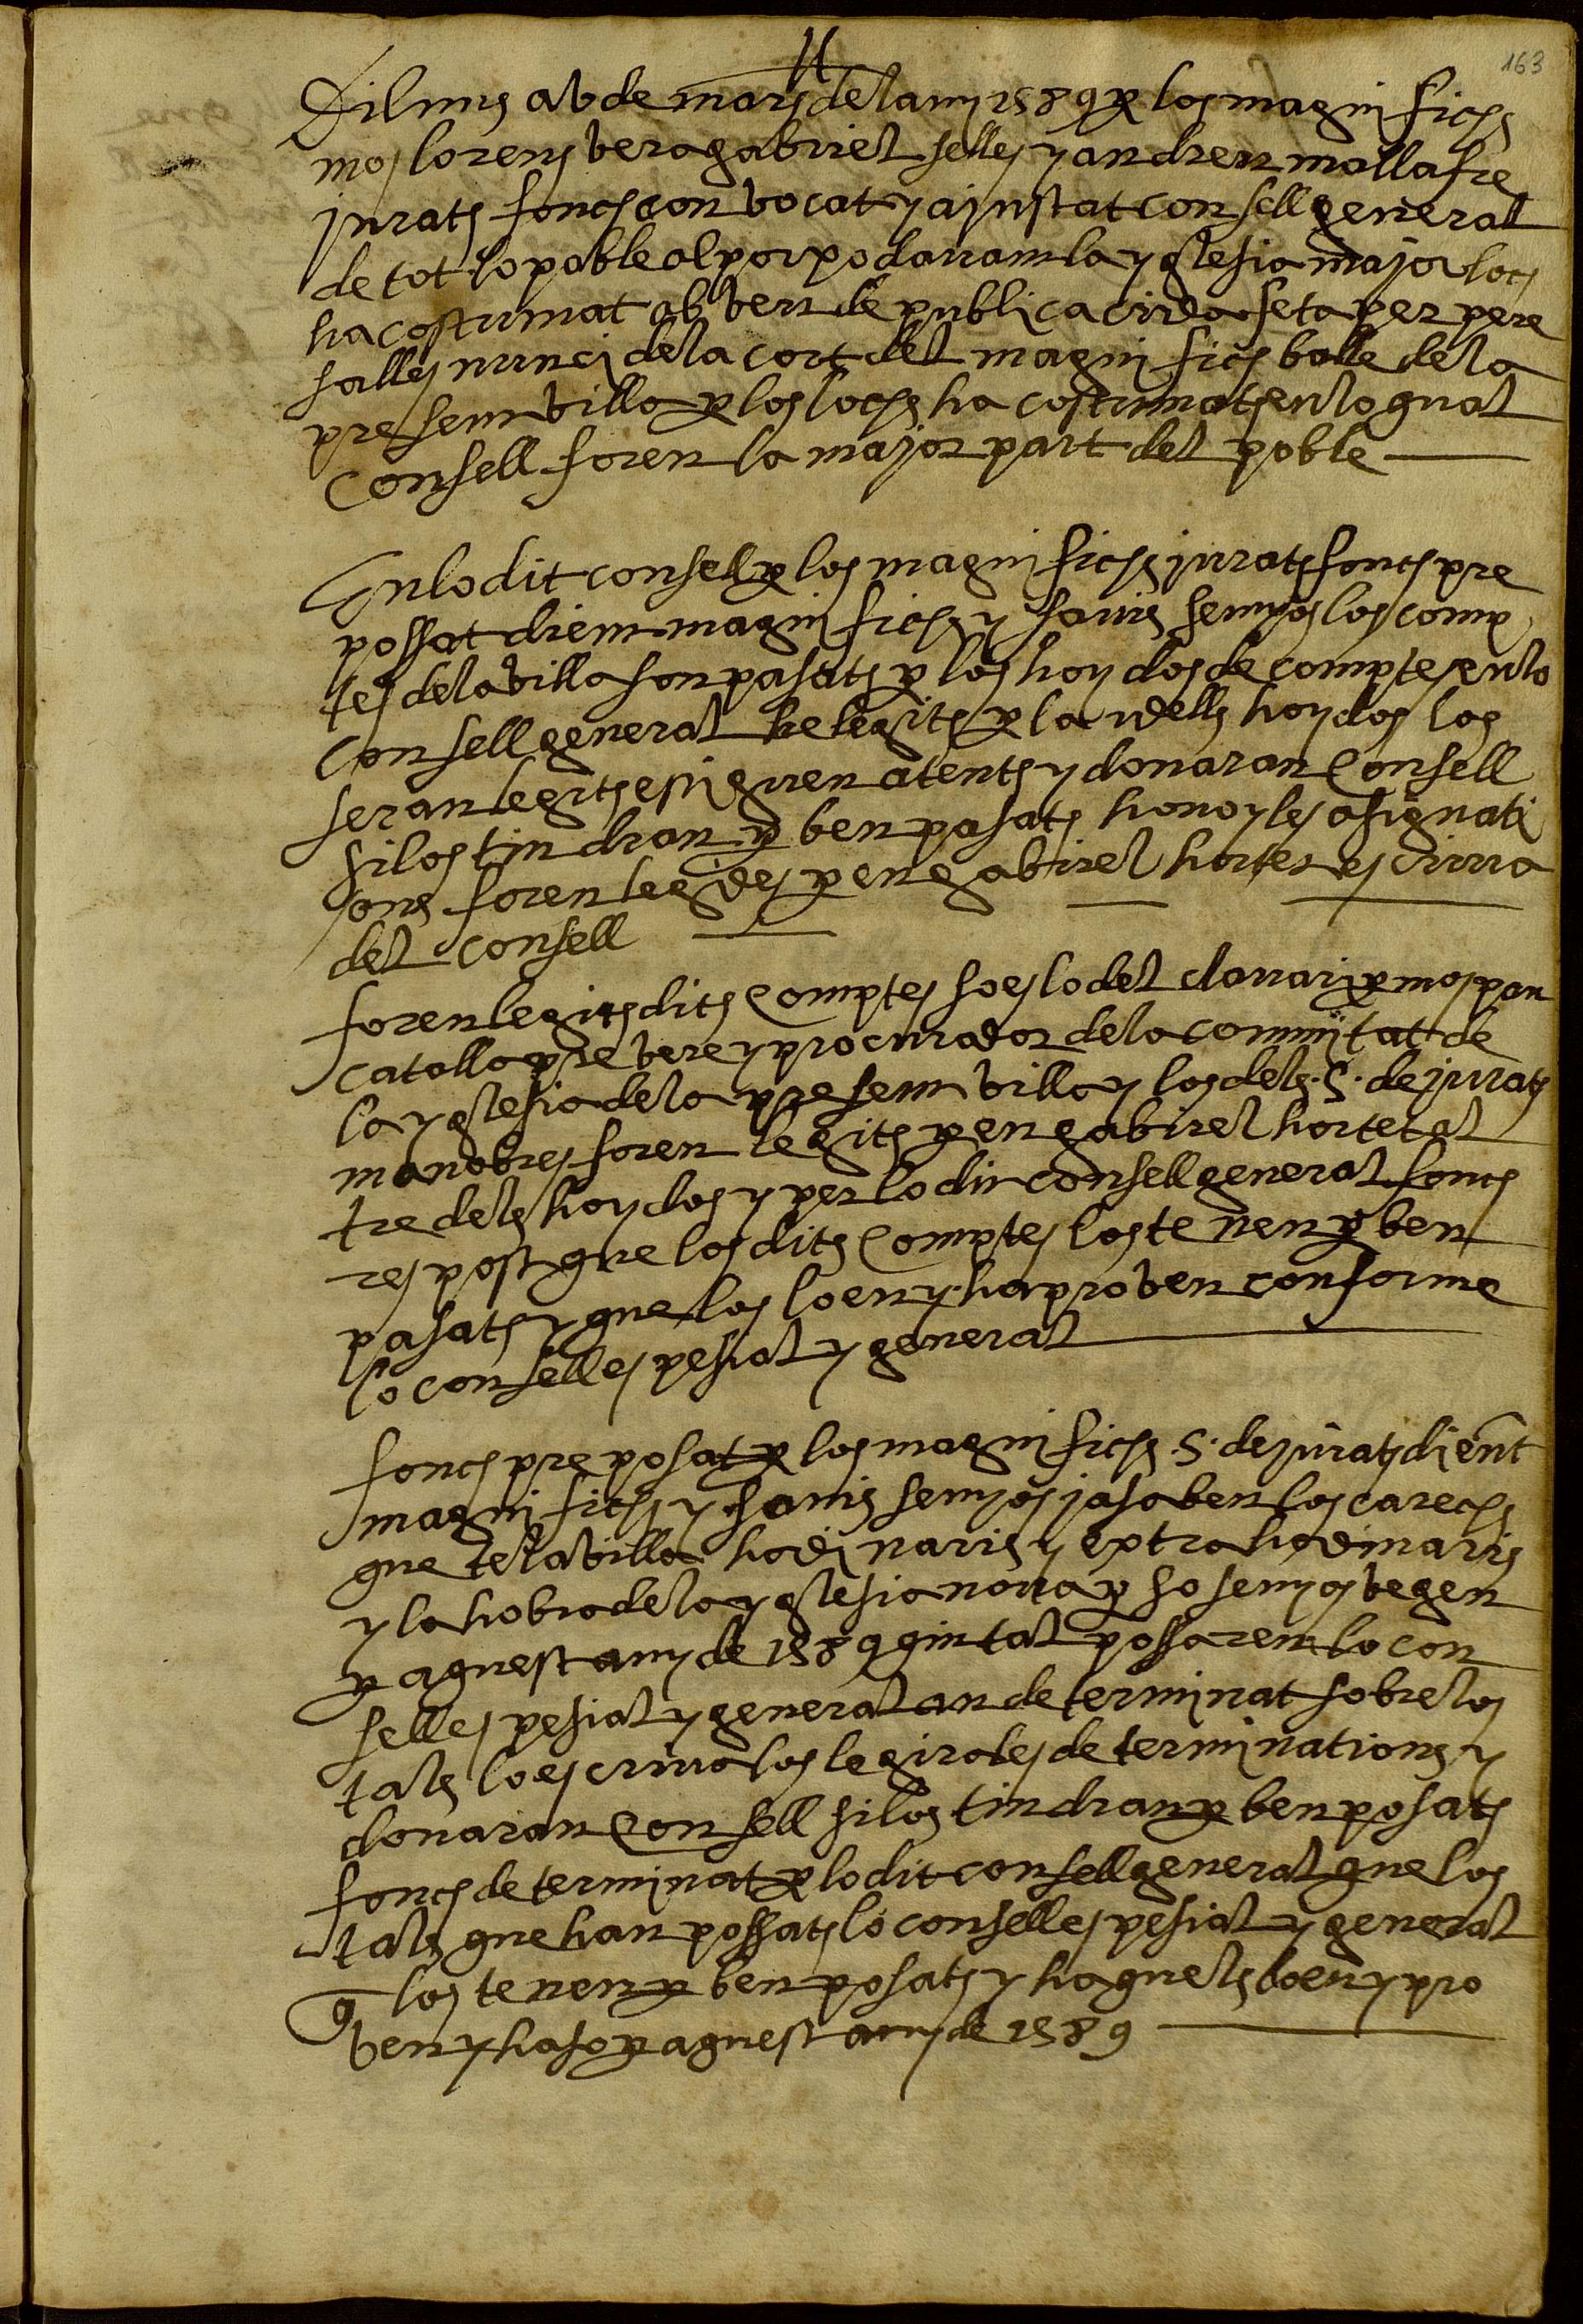 163
Diluns a v de mars del any 1589 p los magnifichs
mos lorens vera gabriel selles y andreu mallafre
jurats fonch convocat y ajustat consell general
de tot lo poble al porxo davant la yglesia major loch
hacostumat ab veu de publica crida feta per pere
salles nunci de la cort del magnifich balle de la
present villa p los lochs hacostumats en lo qual
Consell foren la major part del poble
En lo dit consell p los magnifichs jurats fonch pre
possat dient magnifichs y savis senyos los comp
tes de la villa son pasats p los hoydos de comptes en lo
Consell general helegits p la hu dells hoydos los
seran legits estiguen atents y donaran Consell
si los tindran p ben pasats hono y les asignati
ons foren legides p en gabirel horter escriva
del consell
foren legits dits Comptes so es lo del clavari p mos pau
catalla prevere y procurador de la comunitat de
la yglesia de la present villa y los dels .S. de jurats
manobres foren legits p en gabirel horter al
tre dels hoydos y per lo dit consell general fonch
respost que los dits Comptes los tenen p ben
pasats y que los loen y haproven conforme
lo consell espesial y general
fonch preposat p los magnifichs .S. de jurats dient
magnifichs y savis senyos ja saben los carechs
que te la villa hordinaris y extrahordinaris
y la hobra de la yglesia nova p so senyos vegen
p aquest any de 1589 quin tal possarem lo con
sell espesial y general an determinat sobre los
tals lo escriva los legira les determinations y
donaran Consell si los tindran p ben posats
fonch determinat p lo dit consell general que los
tals que han possats lo consell espesial y general
q los tenen p ben posats y ha quels loen y pro
ven y haso p aquest any de 1589